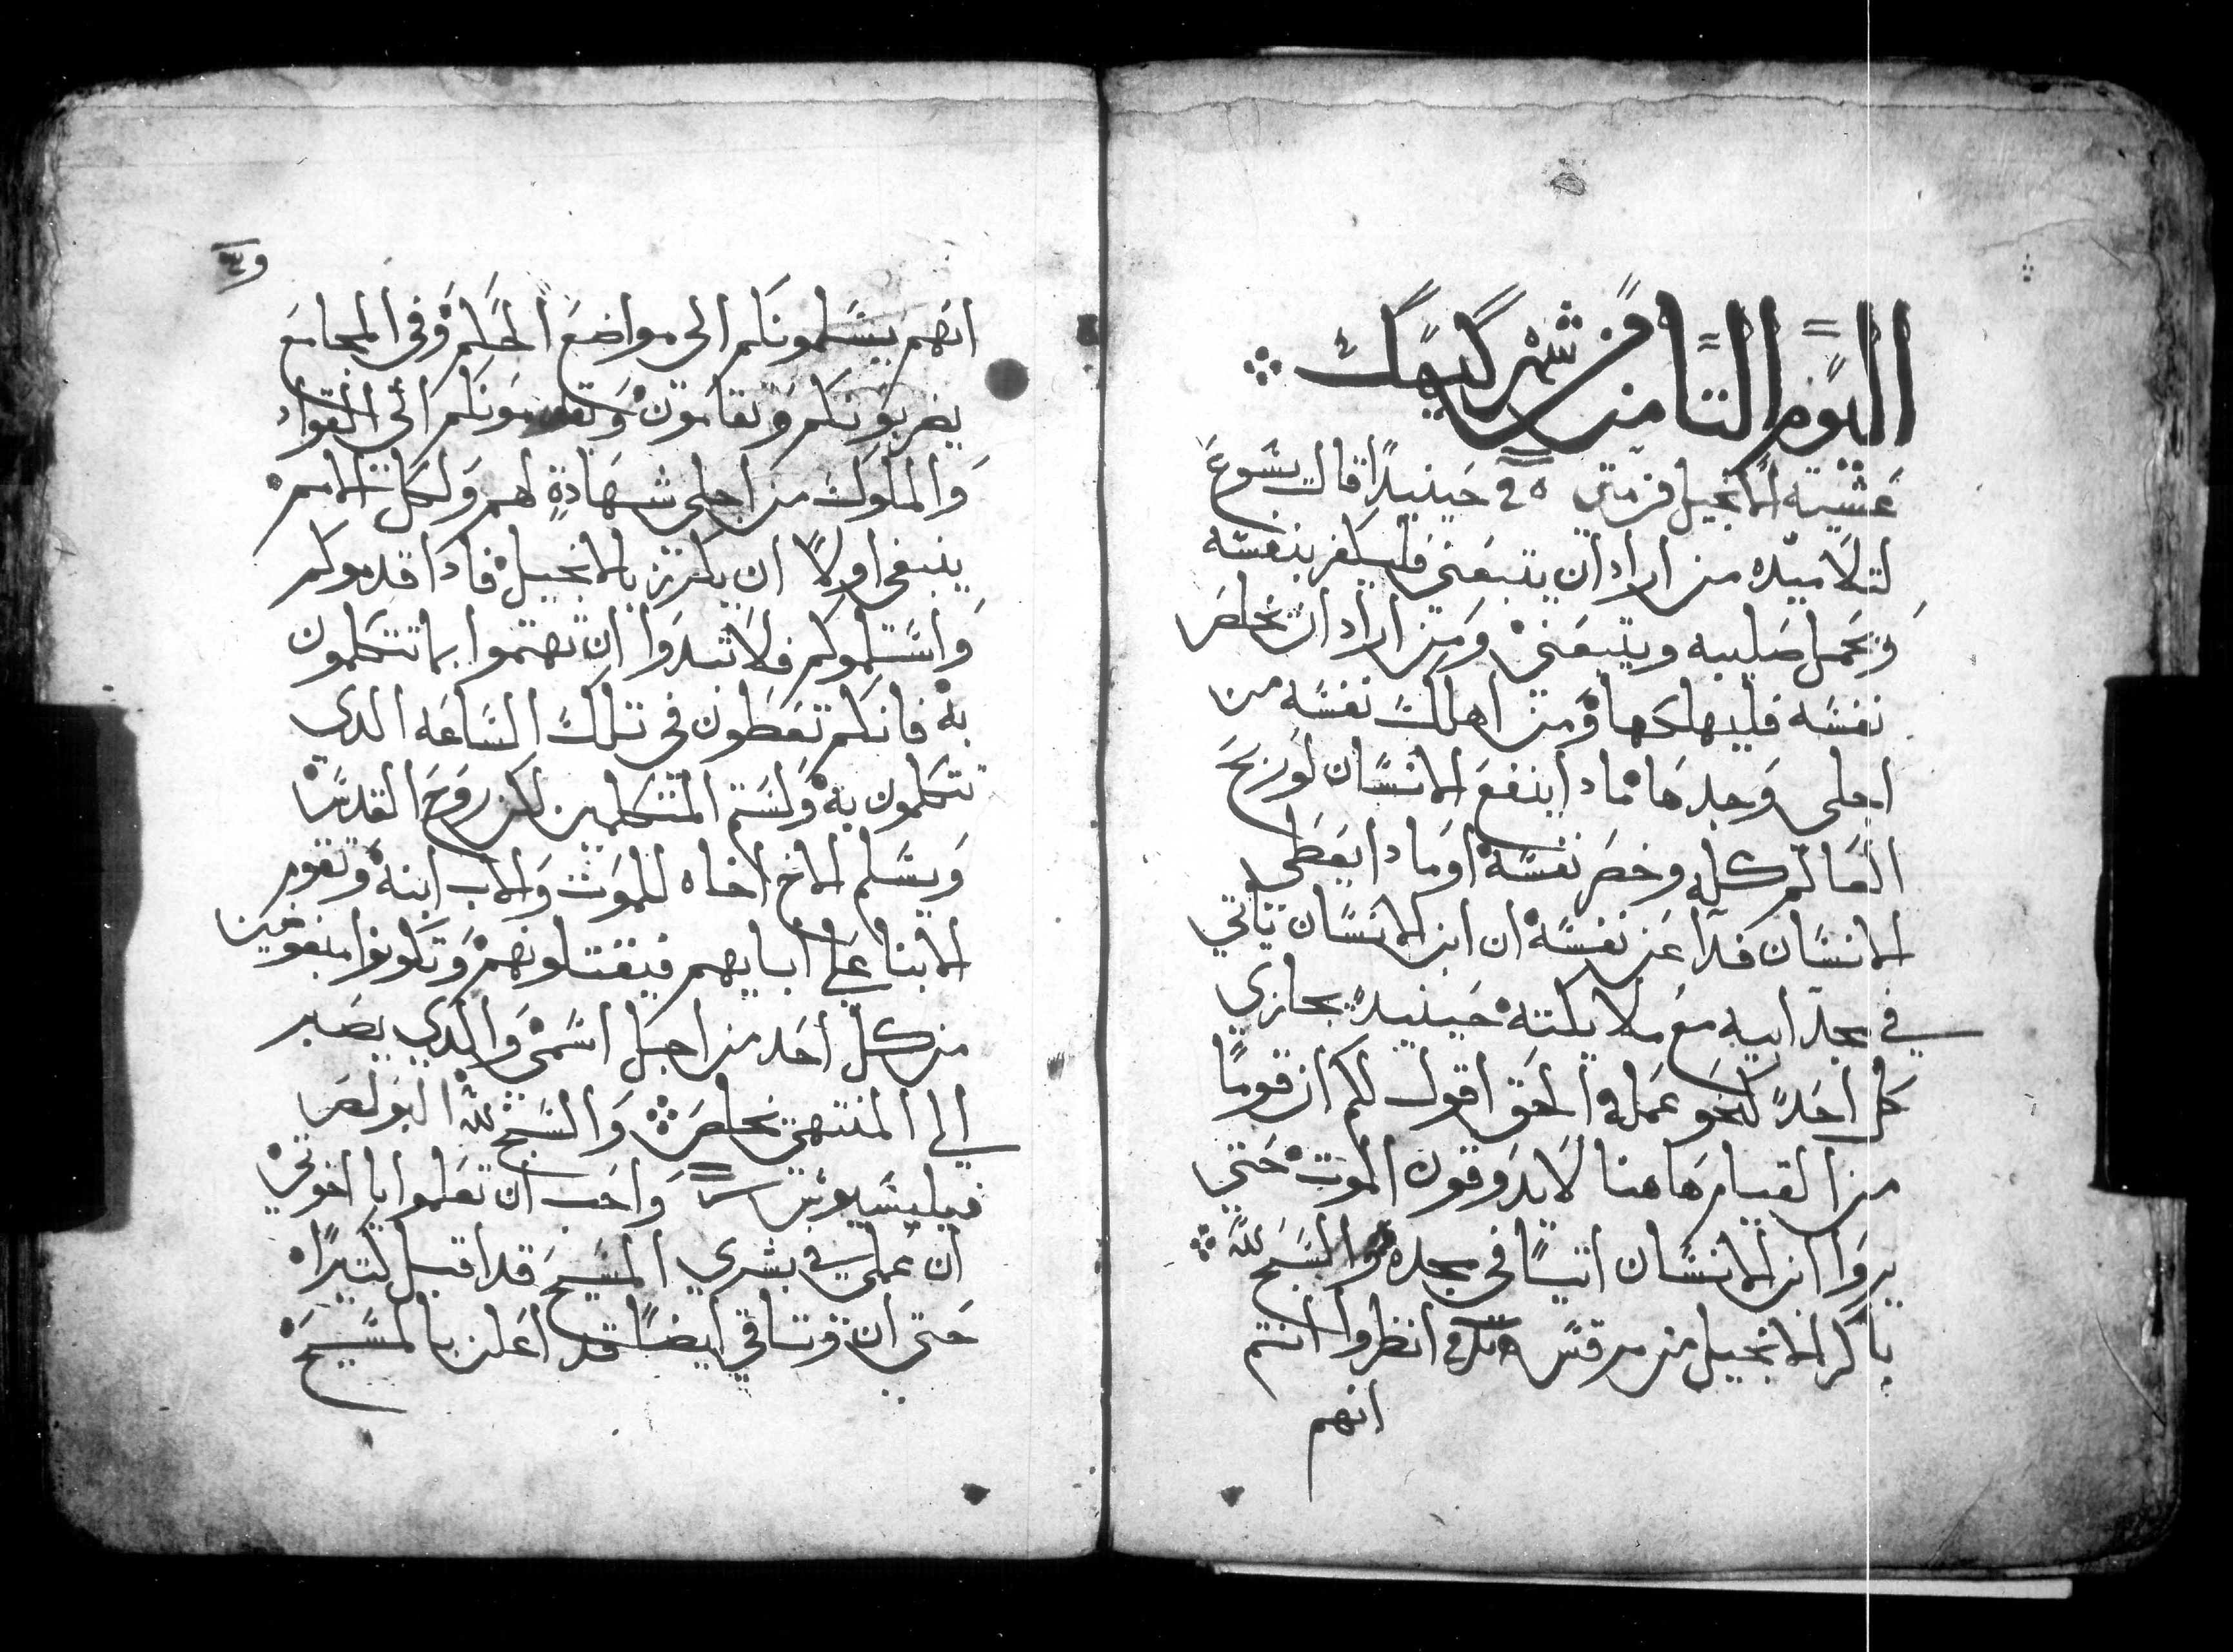 اليوم التامن من شهر كيهك
عشيته الانجيل من متى حينيدا قال يسوع
لتلاميده من اراد ان يتبعني فليكفر بنفسه
ويحمل صليبه ويتبعني ومن اراد ان يخلص
نفسه فليهلكها ومن اهلك نفسه من
اجلي وجدها مادا ينفع الانسان لو ربح
العالم كله وخصر نفسه او مادا يعطي
الانسان فدا عن نفسه ان ابن الانسان ياتي
في مجد ابيه مع ملايكته حينيد يجازي
كل احد كنحو عمله الحق اقول لكم ان قوما
من القيام هاهنا لا يدوقون الموت حتي
يروا ابن الانسان اتيا في مجده والسبح لله
باكر الانجيل من مرقس انظروا انتم
انهم
انهم يسلمونكم الى مواضع الحكم وفي المجامع
يضربونكم وتقامون وتقدمونكم الى القواد
والملوك من اجلي شهادة لهم ولكل الامم
ينبغي اولا ان يكرز بالانجيل فادا قدموكم
واسلموكم فلا تبدوا ان تهتموا بما تتكلمون
به فانكم تعطون في تلك الساعه الدي
تتكلمون به ولستم المتكلمين لكن روح القدس
ويسلم الاخ اخاه للموت والاب ابنه وتقوم
الابنا علي ابايهم فيقتلونهم وتكونوا مبغوضين
من كل احد من اجل اسمي والدي يصبر
الي المنتهي يخلص والسبح لله البولص
فيليبسيوس واحب ان تعلموا يا اخوتي
ان عملي في بشري المسيح قد اقبل كتيرا
حتي ان وتاقي ايضا قد اعلن بالمسيح